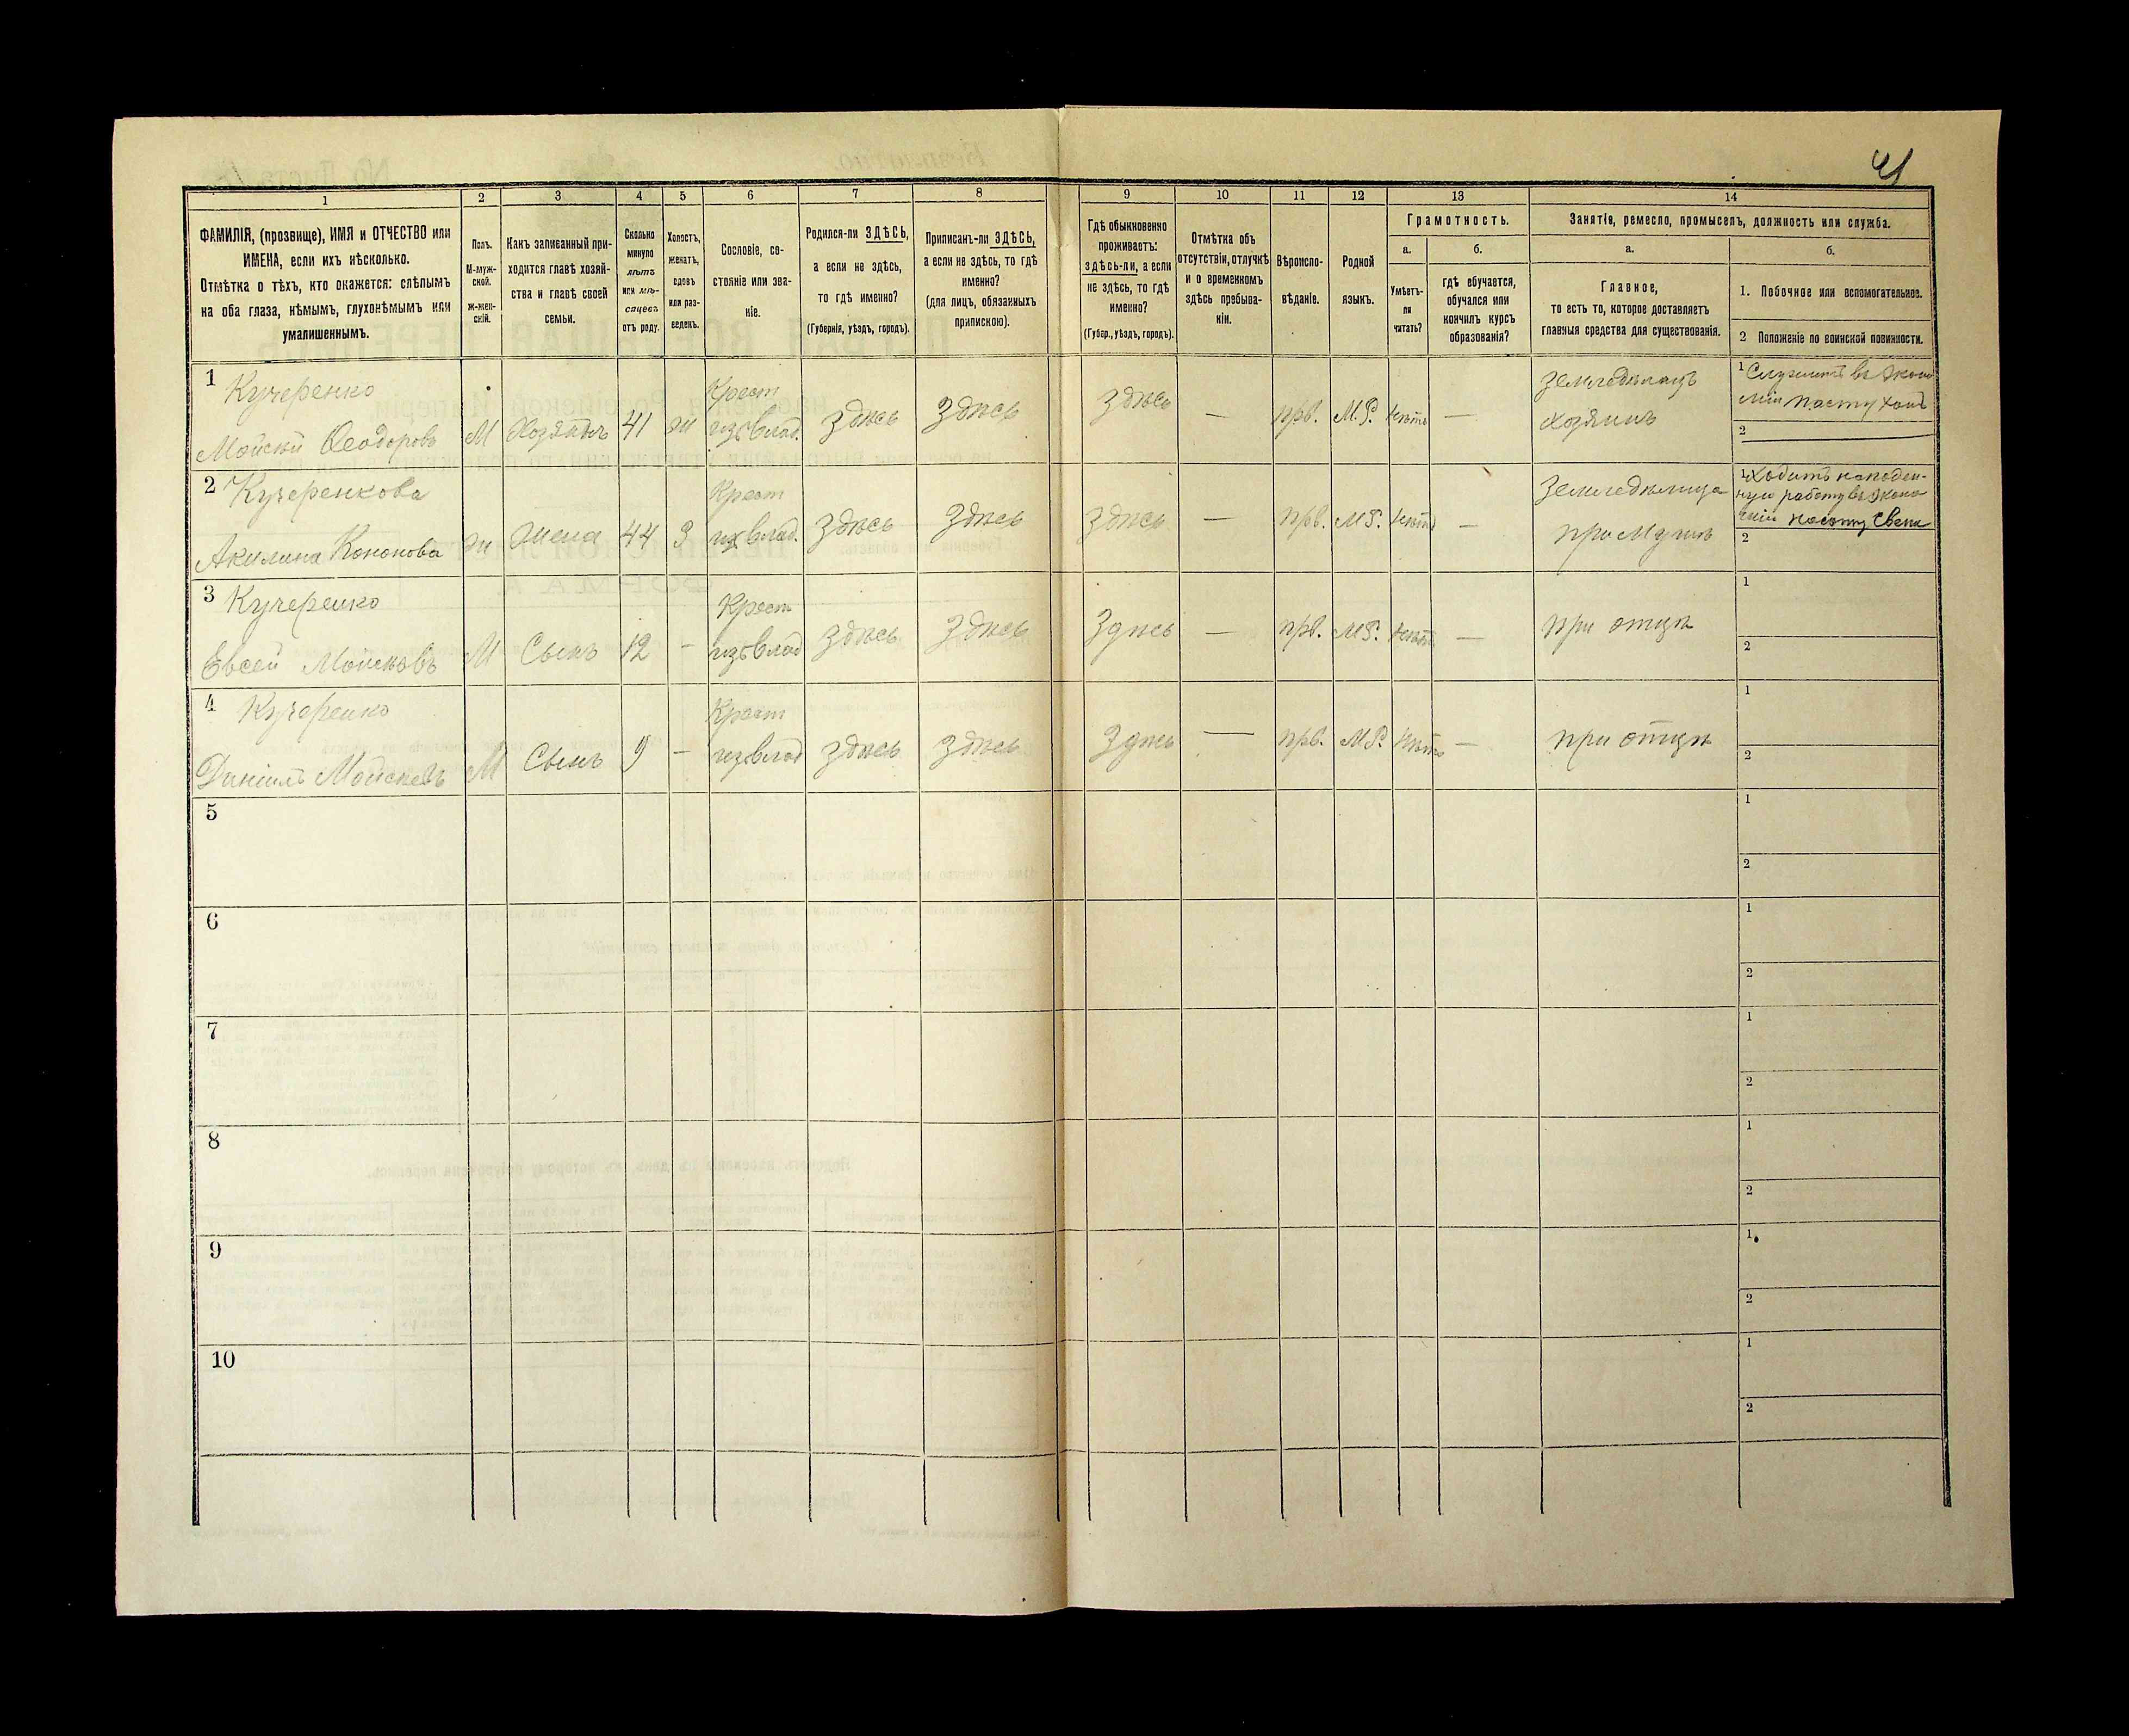 41
1
2
3
4
5
6
7
8
9
10
11
12
13
14
ФАМИЛІЯ, (прозвище), ИМЯ и ОТЧЕСТВО или
ИМЕНА, если ихъ нѣсколько.
Отмѣтка о тѣхъ, кто окажется: слѣпымъ
на оба глаза, нѣмымъ, глухонѣмымъ или
умалишеннымъ.
Полъ.
М-муж-
ской.
ж-жен-
скій.
Какъ записанный при-
ходится главѣ хозяй-
ства и главѣ своей
семьи.
Сколько
минуло
лѣтъ
или мѣ-
сяцевъ
отъ роду.
Холостъ,
женатъ,
вдовъ
или раз-
веденъ.
Сословіе, со-
стояніе или зва-
ніе.
Родился-ли ЗДѢСЬ,
а если не здѣсь,
то гдѣ именно?
(Губернія, уѣздъ, городъ).
Приписанъ-ли ЗДѢСЬ,
а если не здѣсь, то гдѣ
именно?
(для лицъ, обязанныхъ
припискою).
Гдѣ обыкновенно
проживаетъ:
здѣсь-ли, а если
не здѣсь, то гдѣ
именно?
(Губер., уѣздъ, городъ).
Отмѣтка объ
отсутствіи, отлучкѣ
и о временномъ
здѣсь пребыва-
ніи.
Вѣроиспо-
вѣданіе.
Родной
языкъ.
Грамотность.
а.
Умѣетъ-
ли
читать?
б.
гдѣ обучается,
обучался или
кончилъ курсъ
образованія?
Занятія, ремесло, промыселъ, должность или служба.
а.
Главное,
то есть то, которое доставляетъ
главныя средства для существованія.
б.
1. Побочное или вспомогательное.
2 Положеніе по воинской повинности.
1 Кучеренко
Мойсѣй Ѳеодоровъ М Хозяинъ 41 ж Крест изъ влад. Здѣсь Здѣсь Здѣсь — прв. М.Р. Нѣтъ — Земледѣлецъ
хозяинъ
1 Служитъ въ Эконо
міи пастухомъ
2
2 Кучеренкова
Акилина Кононова ж жена 44 З Крест изъ влад. Здѣсь Здѣсь Здѣсь — прв. МР. Нѣтъ — Земледѣлица
при Мужѣ
1 Ходитъ на поден-
ную работу въ Эконо
міи
2
3 Кучеренко
Евсей Мойсѣовъ М Сынъ 12 — Крест изъ влад Здѣсь Здѣсь Здѣсь — прв. МР. Нѣтъ — при отцѣ
1
2
4 Кучеренко
Даніилъ Мойсѣевъ М Сынъ 9 — Крест изъ влад Здѣсь Здѣсь Здѣсь — прв. МР. Нѣтъ — при отцѣ
1
2
5
1
2
6
1
2
7
1
2
8
1
2
9
1
2
10
1
2